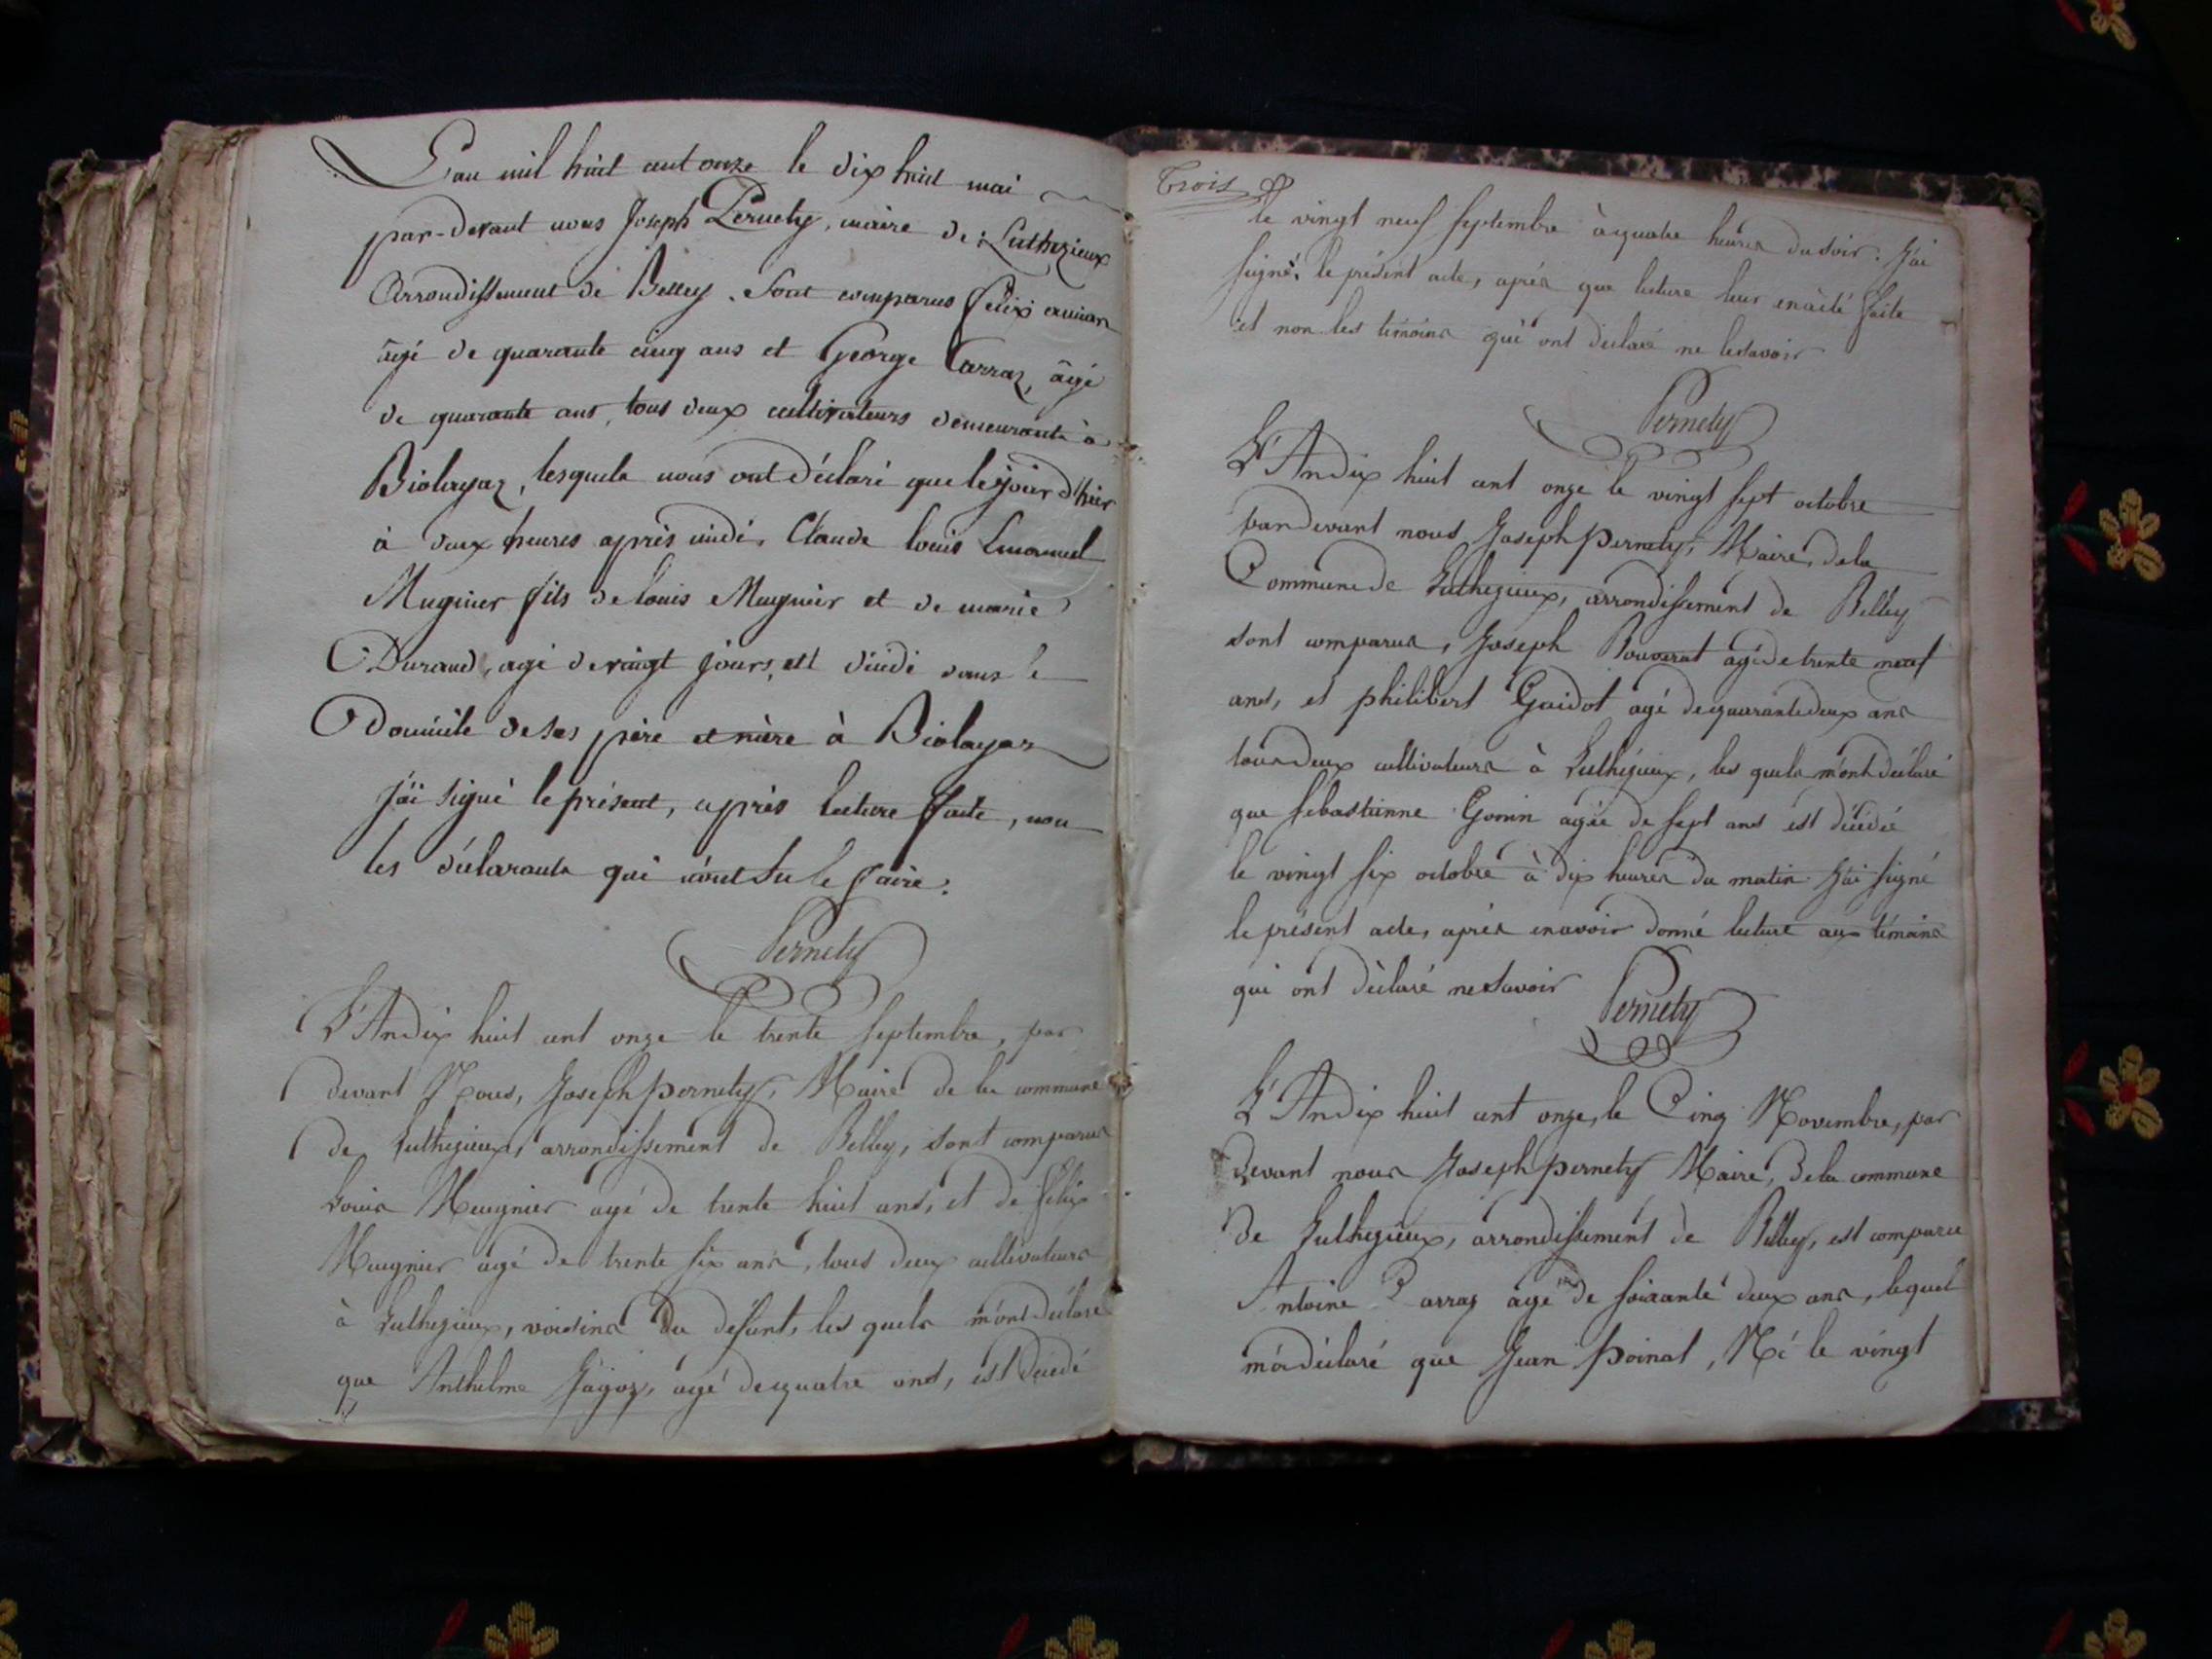 L'an mil huit cent onze le dix huit mai
par-devant nous Joseph Pernety, maire de Luthezieux
Arrondissement de Belley. Sont comparus felix
âgé de quarante cinq ans et George Carraz, âgé
de quarante ans, tous deux cultivateurs demeurants à
Biolayaz, lesquels nous ont déclaré que le jour d'hier
à deux heures après midi, Claude louis Emanuel
Mugnier fils de louis Mugnier et de marie
Durand, agé de vingt jours, est décédé dans le
Domicile de ses père et mère à Biolayaz
J'ai signé le présent, après lecture faite, non
les déclarants qui n'ont su le faire.
Pernety
L'An dix huit cent onze le trente septembre, par
devant Nous, Joseph pernety, Maire de la commune
de Luthezieux, arrondissement de Belley, sont comparus
Louis Meugnier agé de trente huit ans, et de felix
Meugnier agé de trente six ans, tous deux cultivateurs
à Luthezieux, voisins du défunt, les quels m'ont déclaré
que Anthelme Jágoz, agé de quatre ans, est décedé
Trois
le vingt neuf septembre à quatre heures du soir. J'ai
signé, le présent acte, après que lecture leur en à été faite
et non les témoins qui ont déclaré ne le savoir
Pernety
L'An dix huit cent onze le vingt sept octobre
par devant nous Joseph pernety, Maire, de la
Commune de Luthezieux, arrondissement de Belley
sont comparus, Joseph Bouvarat agé de trente neuf
ans, et philibert Guidot agé de quarante deux ans
tous deux cultivateurs à Luthézieux, les quels m'ont déclaré
que sebastienne Gonin agée de sept ans est décédée
le vingt six octobre à dix heures du matin J'ai signé
le présent acte, après en avoir donné lecture aux témoins
qui ont déclaré ne savoir
Pernety
L'An dix huit cent onze, le Cinq Novembre, par
devant nous Joseph pernety Maire, de la commune
de Luthezieux, arrondissement de Belley, est comparu
Antoine Carraz agé de soixante deux ans, lequel
m'a déclaré que Jean Poinat, Né le vingt